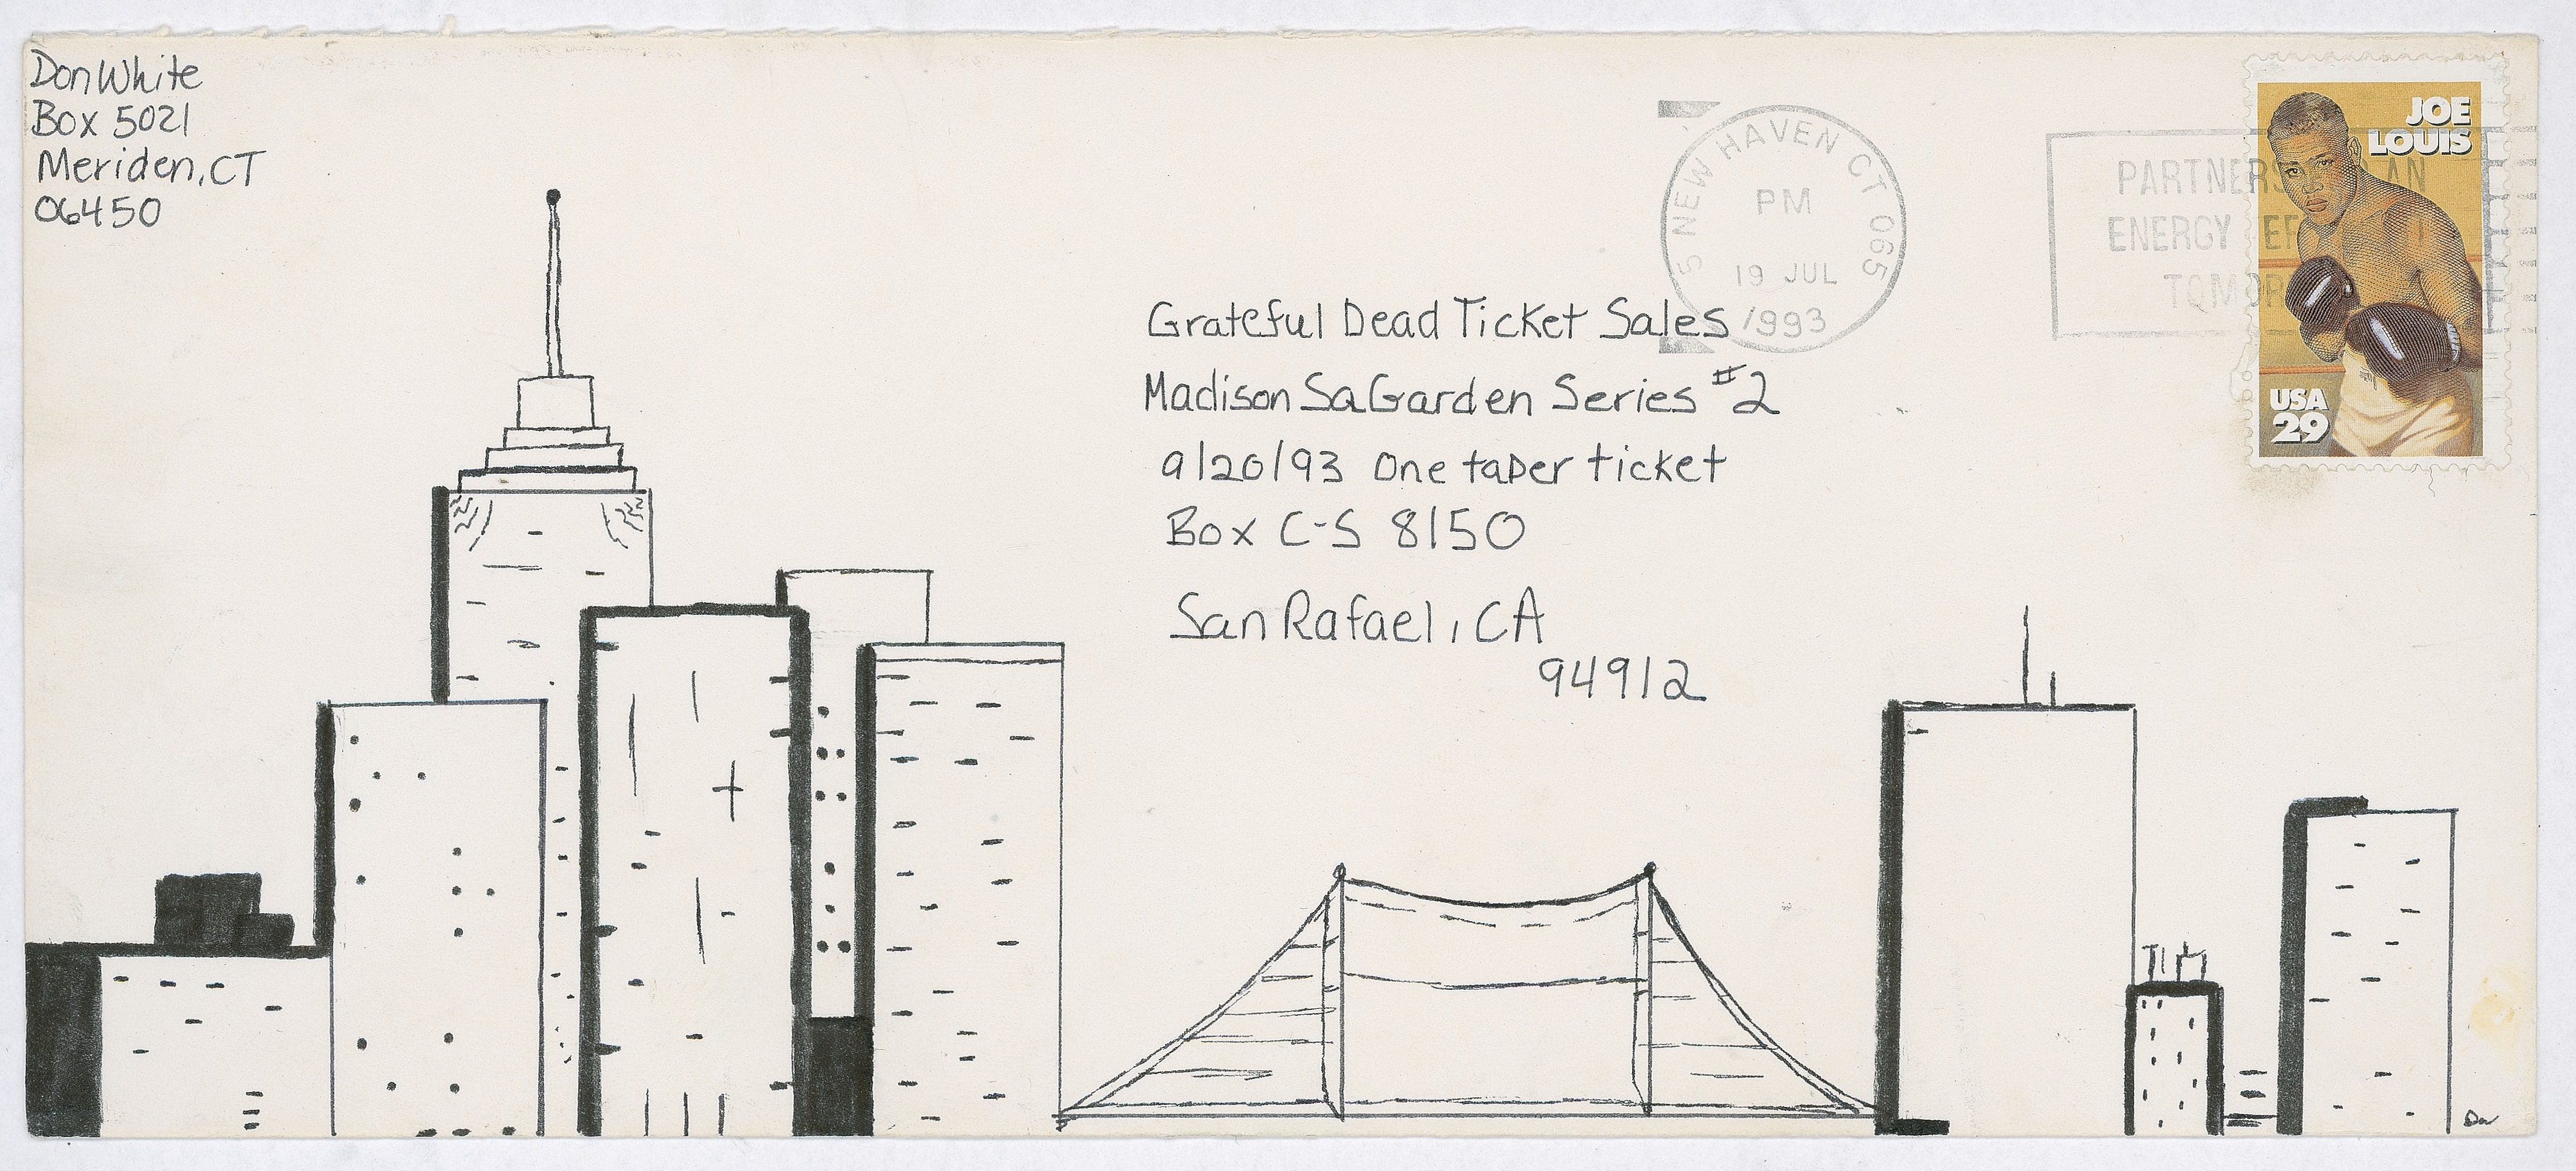 Don White
Box 5021
Meriden, CT
06450
NEW HAVEN CT 065
PM
19 JUL
1993
PARTNERS AN
ENERGY
JOE
LOUIS
USA
29
Grateful Dead Ticket Sales
Madison Sq Garden Series #2
9/20/93 One taper ticket
Box C-S 8150
San Rafael, CA
94912